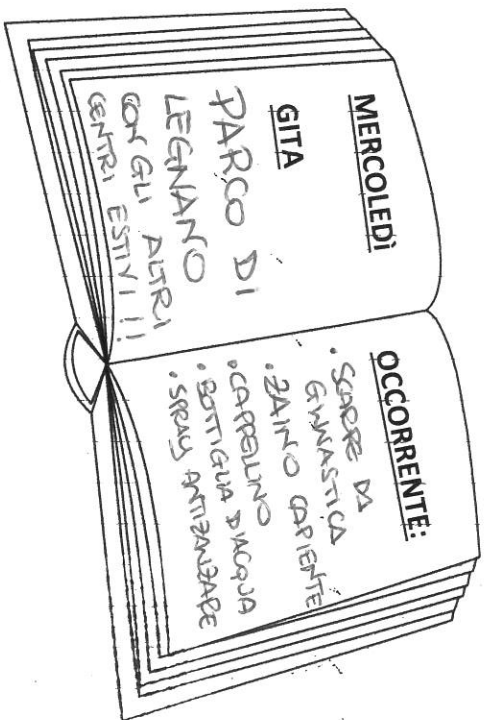 MERCOLEDÌ
GITA
PARCO DI
LEGNANO
CON GLI ALTRI
CENTRI ESTIVI !!
OCCORRENTE:
• SCARPE DA
GINNASTICA
• ZAINO CAPIENTE
• CAPPELLINO
• BOTTIGLIA D'ACQUA
• SPRAY ANTIZANZARE